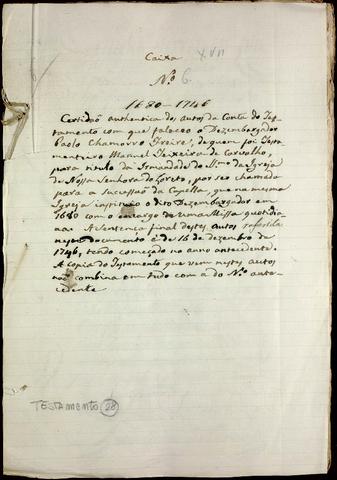 Caixa XVII
Nº 6.
1680-1746
Certidaõ authentica dos autos da Conta do Tes-
tamento com que faleceo o Dezembargador
Paolo Chamorro Freire, de quem foi Testa-
menteiro Manuel Teixeira de Carvalho,
para titulo da Irmandade do Sᵐᵒ da Igreja
de Nossa Senhora do Loreto, por ser chamada
para a Sucessaõ da Capella, que na mesma
Igreja instituio o dito Dezembargador em
1680 com o encargo de uma Missa quotidia
na. A Sentença final destes autos referida
neste documento é de 16 de dezembro de
1746, tendo começado no anno antecedente.
A copia do Testamento que vem nestes autos
naõ combina em tudo com a do Nº ante-
cedente
TESTAMENTO 28